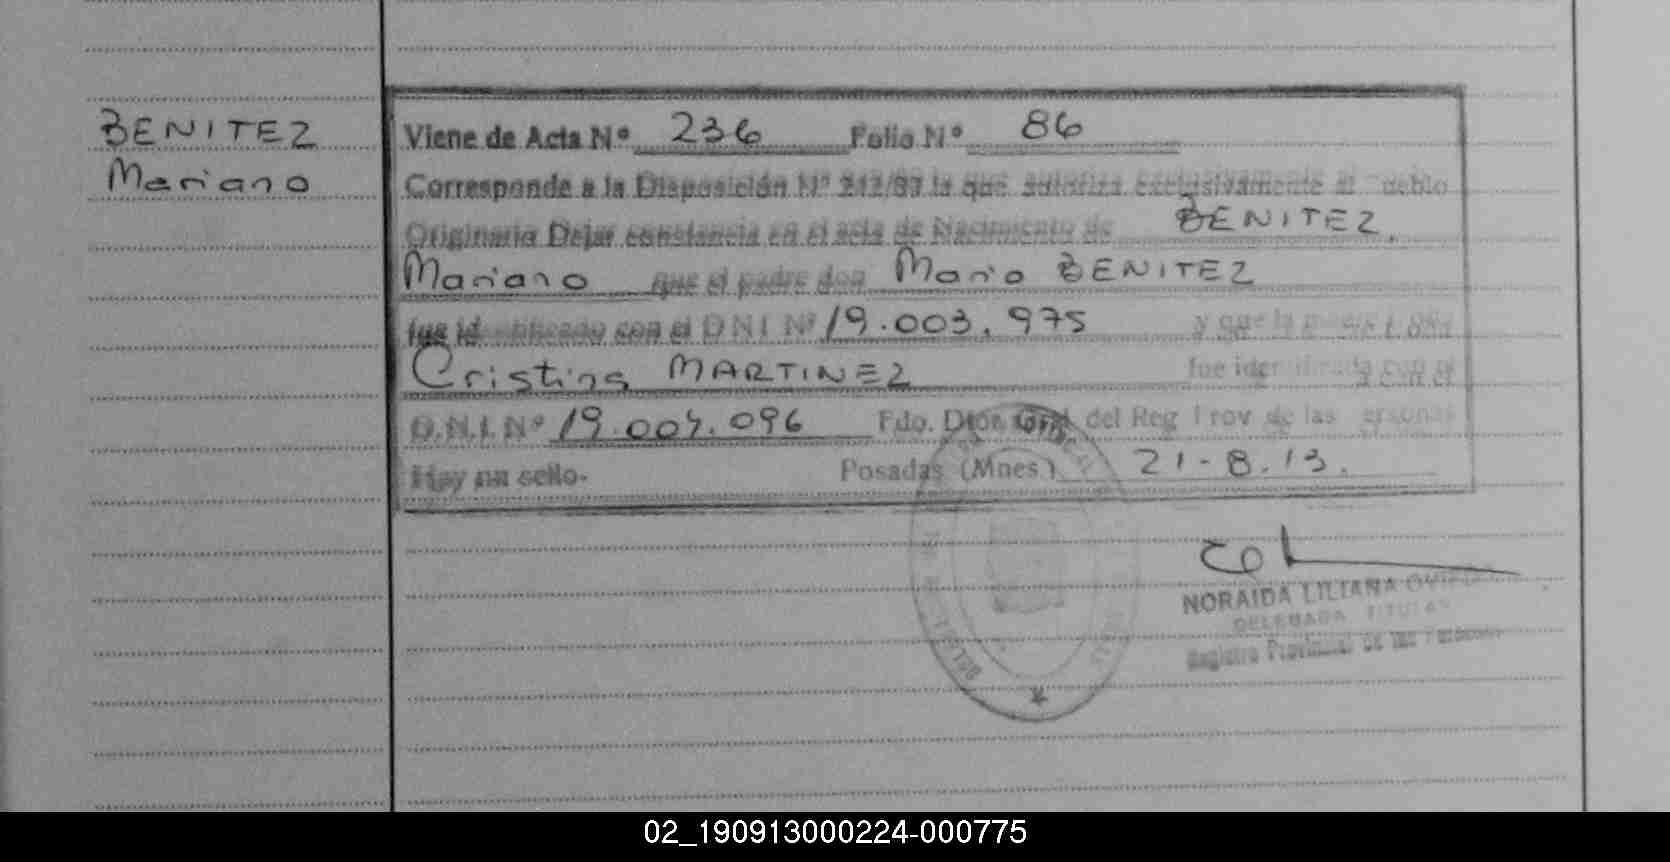 BENITEZ
Mariano
Viene de Acta Nº 236 Folio Nº 86
Corresponde a la Disposición Nº 212/83 la que autoriza exclusivamente al Pueblo
Originario Dejar constancia en el acta de Nacimiento de BENITEZ,
Mariano que el padre don Mario BENITEZ
fue identificado con el D N I Nº 19.003.975 y que la
Cristina MARTINEZ fue identificada con el
D.N.I. Nº 19.004.096 Fdo. Dtor. Gral. del Reg Prov de las Personas
Hay un sello. Posadas (Mnes.) 21-8.13.
NORAIDA LILIANA
DELEGADA TITULAR
Registro Provincial de las Personas
02_190913000224-000775